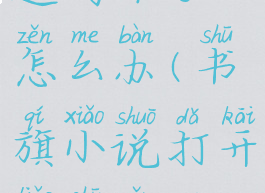 zěn me bàn shū
怎么办(书
qí xiǎo shuō dǎ kāi
旗小说打开